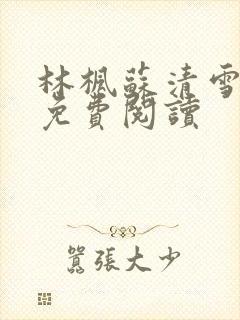 林楓蘇清雪
免費閱讀
囂張大少